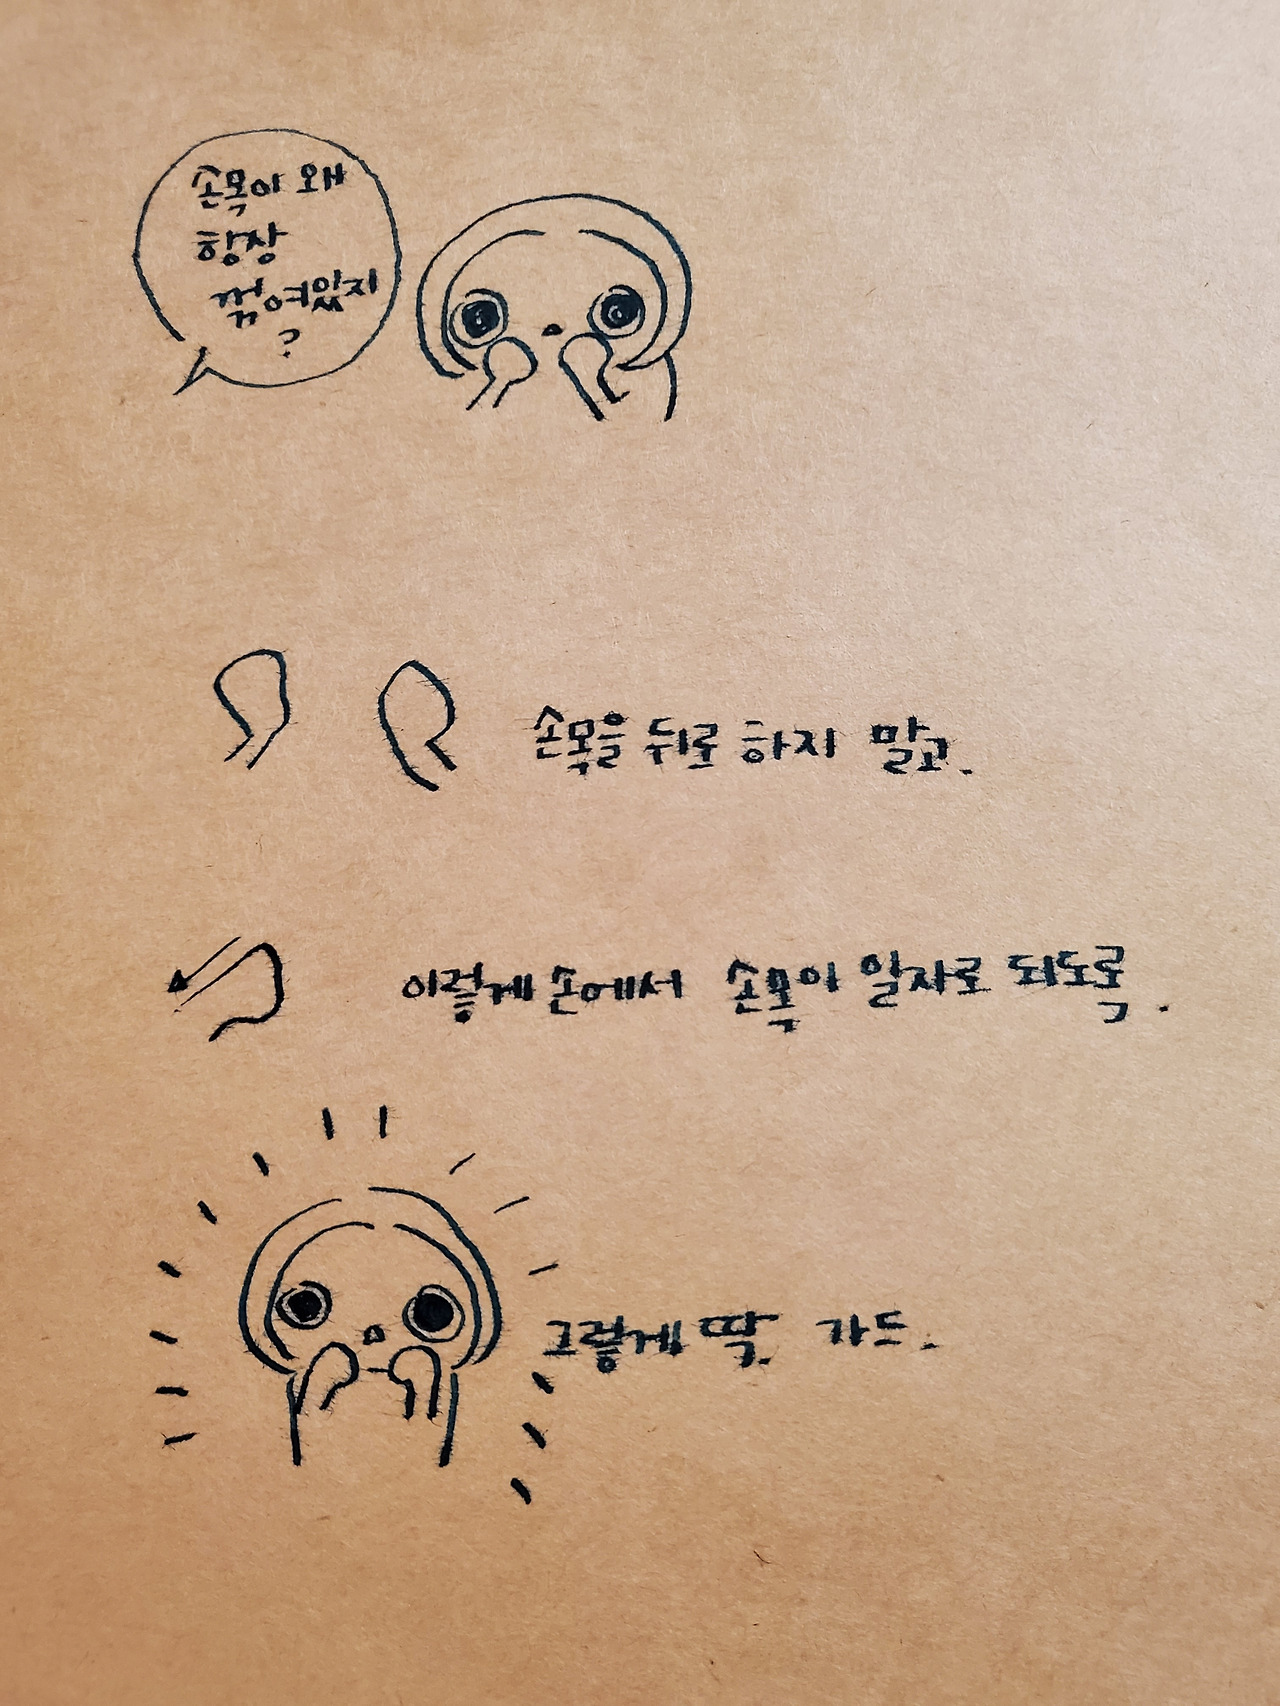 손목이 왜
항상
꺾여있지
?
손목을 뒤로 하지 말고.
이렇게 손에서 손목이 일자로 되도록.
그렇게 딱. 가드.